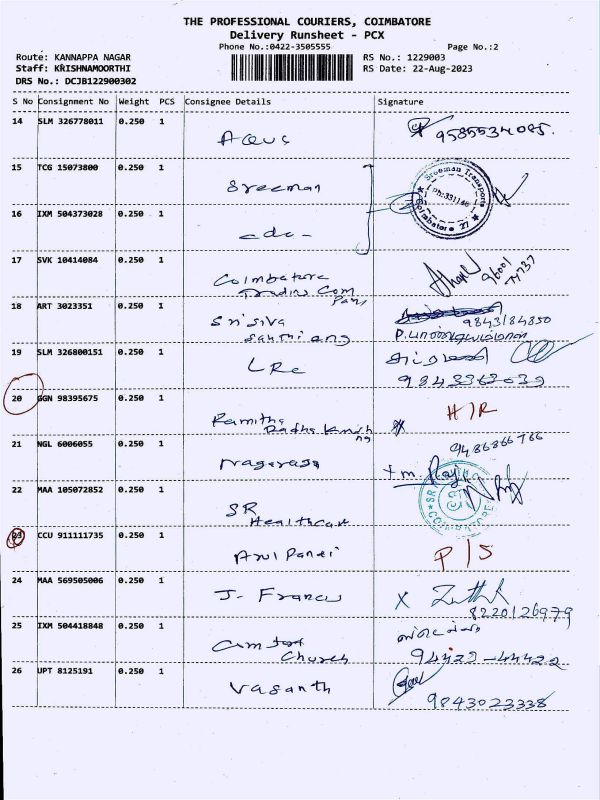 THE PROFESSIONAL COURIERS, COIMBATORE
Delivery Runsheet - PCX
Phone No.:0422-3505555
Page No.:2
Route: KANNAPPA NAGAR
RS No.: 1229003
Staff: KRISHNAMOORTHI
RS Date: 22-Aug-2023
DRS No.: DCJB122900302
S No Consignment No Weight PCS Consignee Details Signature
14 SLM 326778011 0.250 1
15 TCG 15073800 0.250 1 Sreeman
Sreeman Transports
Ph:331146
Coimbatore 27
16 IXM 504373028 0.250 1 -do-
17 SVK 10414084 0.250 1 Coimbatore
Trading Com
pany
18 ART 3023351 0.250 1 Sri Siva
9843184850
19 SLM 326800151 0.250 1 LRC
20 GGN 98395675 0.250 1
Radha Krish
H/R
21 NGL 6006055 0.250 1 Nagaraja
9486866766
22 MAA 105072852 0.250 1 SR
Healthcare
SR
COIMBATORE
23 CCU 911111735 0.250 1 Arul Pandi P/S
24 MAA 569505006 0.250 1 J. Francis X
8220126979
25 IXM 504418848 0.250 1
Church 94422-44422
26 UPT 8125191 0.250 1 Vasanth
9843023338